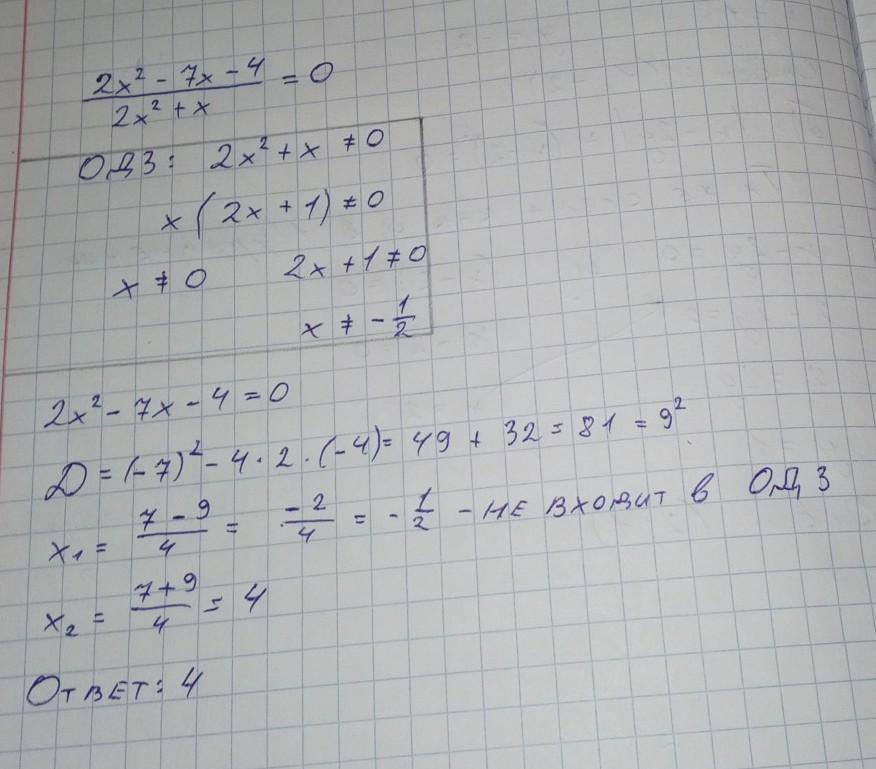 (2x² - 7x - 4)/(2x² + x) = 0
ОДЗ: 2x² + x ≠ 0
x(2x + 1) ≠ 0
x ≠ 0 2x + 1 ≠ 0
x ≠ -1/2
2x² - 7x - 4 = 0
D = (-7)² - 4 · 2 · (-4) = 49 + 32 = 81 = 9²
x₁ = (7 - 9)/4 = -2/4 = -1/2 - не входит в ОДЗ
x₂ = (7 + 9)/4 = 4
Ответ: 4